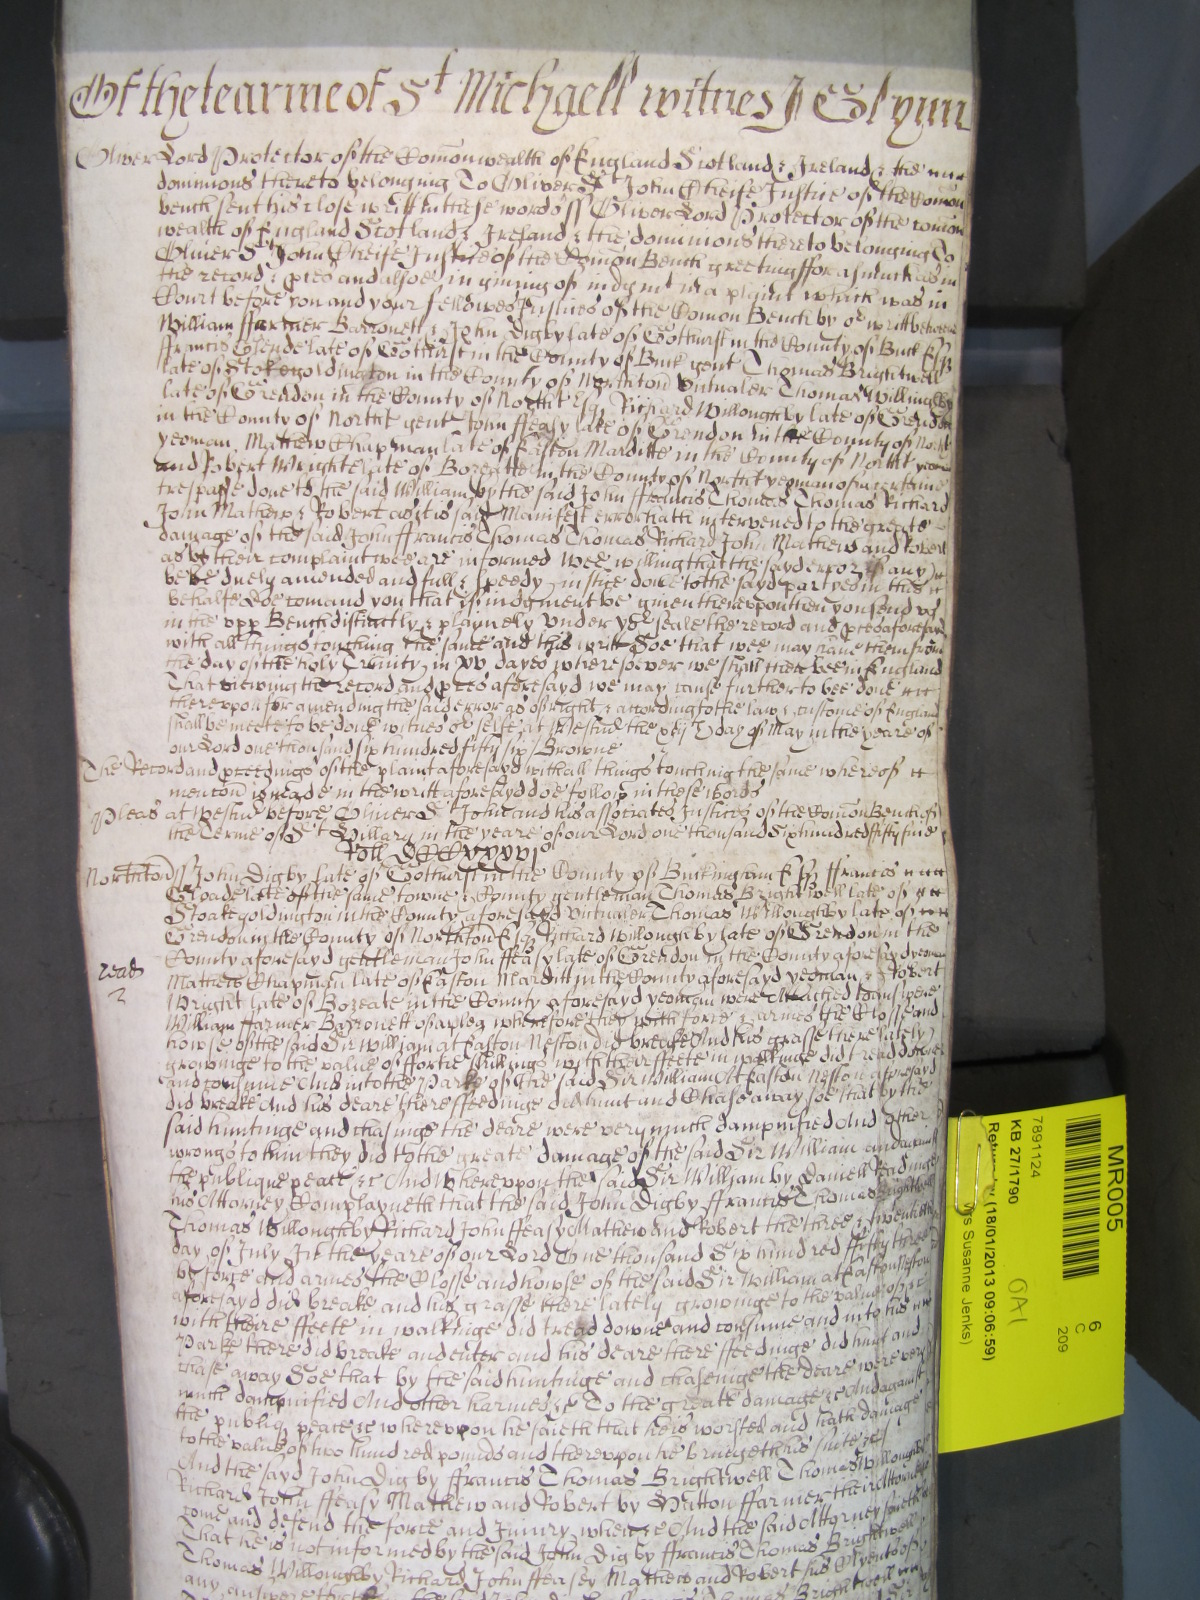 Of the tearme of St Michaell witnes J Glynn
Oliver Lord Protector of the Com̃onwealth of England Scotland & Ireland & the
dominions thereto belonging To Oliver St John Cheife Justice of the Com̃on
bench sent his close writt in these words ss Oliver Lord Protector of the com̃on
wealth of England Scotland & Ireland & the dominions thereto belonging To
Oliver St John Cheife Justice of the Com̃on Bench greeting fforasmuch as in
the record & p̱ces and alsoe in giuing of iudgmt in a plaint which was in
Court before you and your fellowes Justices of the Com̃on Bench by or writt betweene
William ffarmer Barronett & John Digby late of Gothurst in the County of Buck
Francis Glende late of Gothurst in the County of Buck gent Thomas Brightwell
late of Stokegoldington in the County of Northton Victualer Thomas Willinghby
late of Grendon in the County of Northt Esq Richard Willoughby late of Grendon
in the County of Northt gent John ffeasy late of Grendon in the County of North
yeoman Mathew Chapman late of Easton Marditte in the County of Northt
and Robert Wright late of Bozeatt in the County of Northt yeoman of a certaine
trespasse done to the said William by the said John ffrancis Thomas Thomas Richard
John Mathew & Robert as it is said Manifest error hath intervened to the greate
damage of the said John ffrancis Thomas Thomas Richard John Mathew and Robert
as by their complaint wee are informed Wee willing that the sayd error if any
be duely amended and full & speedy justice done to the sayd partyes in this
behalfe Doe comand you that if iudgment be giuen therevpon then you send vs
in the vpp Bench distinctly & playnely vnder yor seale the record and p̱ces aforesayd
with all things touching the same and this writt Soe that wee may haue them from
the day of the holy Trinity in xv dayes wheresoever we shall then bee in England
That viewing the record and p̱ces aforesayd we may cause further to bee done
therevpon for amending the said error as of right & according to the law & custome of England
shall be meete to be done witnes or selfe at Westmr the day of May in the yeare of
our Lord one thousand six hundred fifty six / Browne
The Record and p̱ceedings of the plaint aforesayd with all things touching the same whereof
mencon is made in the writt aforesayd doe follow in these words
Pleas at Westmr before Oliver St John and his associates Justices of the Com̃on Bench of
the Terme of St Hillary in the yeare of our Lord one thousand Six hundred fifty five
Roll
Northton ss John Digby late of Gothurst in the County of Buckingham Esq ffrancis
late of the same towne & County gentleman Thomas Brightwell late of
Stoakegoldington in the County aforesayd Victualer Thomas Willoughby late of
Grendon in the County of Northton Esq Richard Willoughby late of Grendon in the
County aforesayd gentleman John ffeasy late of Grendon in the County aforesayd yeoman
read
2
Mathew Chapman late of Easton Marditt in the County aforesayd yeoman & Robert
Wright late of Bozeate in the County aforesayd yeoman were Attached to answere
William ffarmer Barronett of a plea wherefore they with force & armes the Closse and
howse of the said Sir William at Easton Neston did breake And his grasse there lately
growinge to the value of fortie shillings with their ffeete in walkinge did tread downe
and consume And into the Parke of the said Sir William At Easton Neston aforesayd
did breake And his deare there ffeedinge did hunt and Chase away soe that by the
said huntinge and chasinge the deare were very much dampnified And other
wrongs to him they did to the greate damage of the said Sir William and against
the publique peace &c And wherevpon the said Sir William by Daniell Readinge
his Attorney Complayneth that the said John Digby ffrancis Thomas Brightwell
Thomas Willoughby Richard John ffeasy Mathew and Robert the three & twentieth
day of July In the yeare of our Lord One thousand Six hundred ffifty three
by force and armes the Closse and howse of the said Sir William at Easton Neston
aforesayd did breake and his grasse there lately growinge to the value of &c
with theire ffeete in walkinge did tread downe and consume and into his
Parke there did breake and enter and his deare there ffeedinge did hunt and
chase away Soe that by the said huntinge and chaseinge the deare were very
much dampnified And other harmes &c To the greate damage &c And against
the publiq peace &c wherevpon he saieth that he is worsted and hath damage
to the value of two hundred pounds and therevpon he bringeth his suite &c
And the sayd John Digby ffrancis Thomas Brightwell Thomas Willoughby
Richard John ffeasy Mathew and Robert by Hatton ffarmer their Attorney
come and defend the force and Injury when &c And the said Attorney saieth
That he is not informed by the said John Digby ffrancis Thomas Brightwell
Thomas Willoughby Richard John ffeasey Mathew and Robert his Clyents of
any answere
MR005
6
C
209
7891124
KB 27/1790
(18/01/2013 09:06:59)
Susanne Jenks)